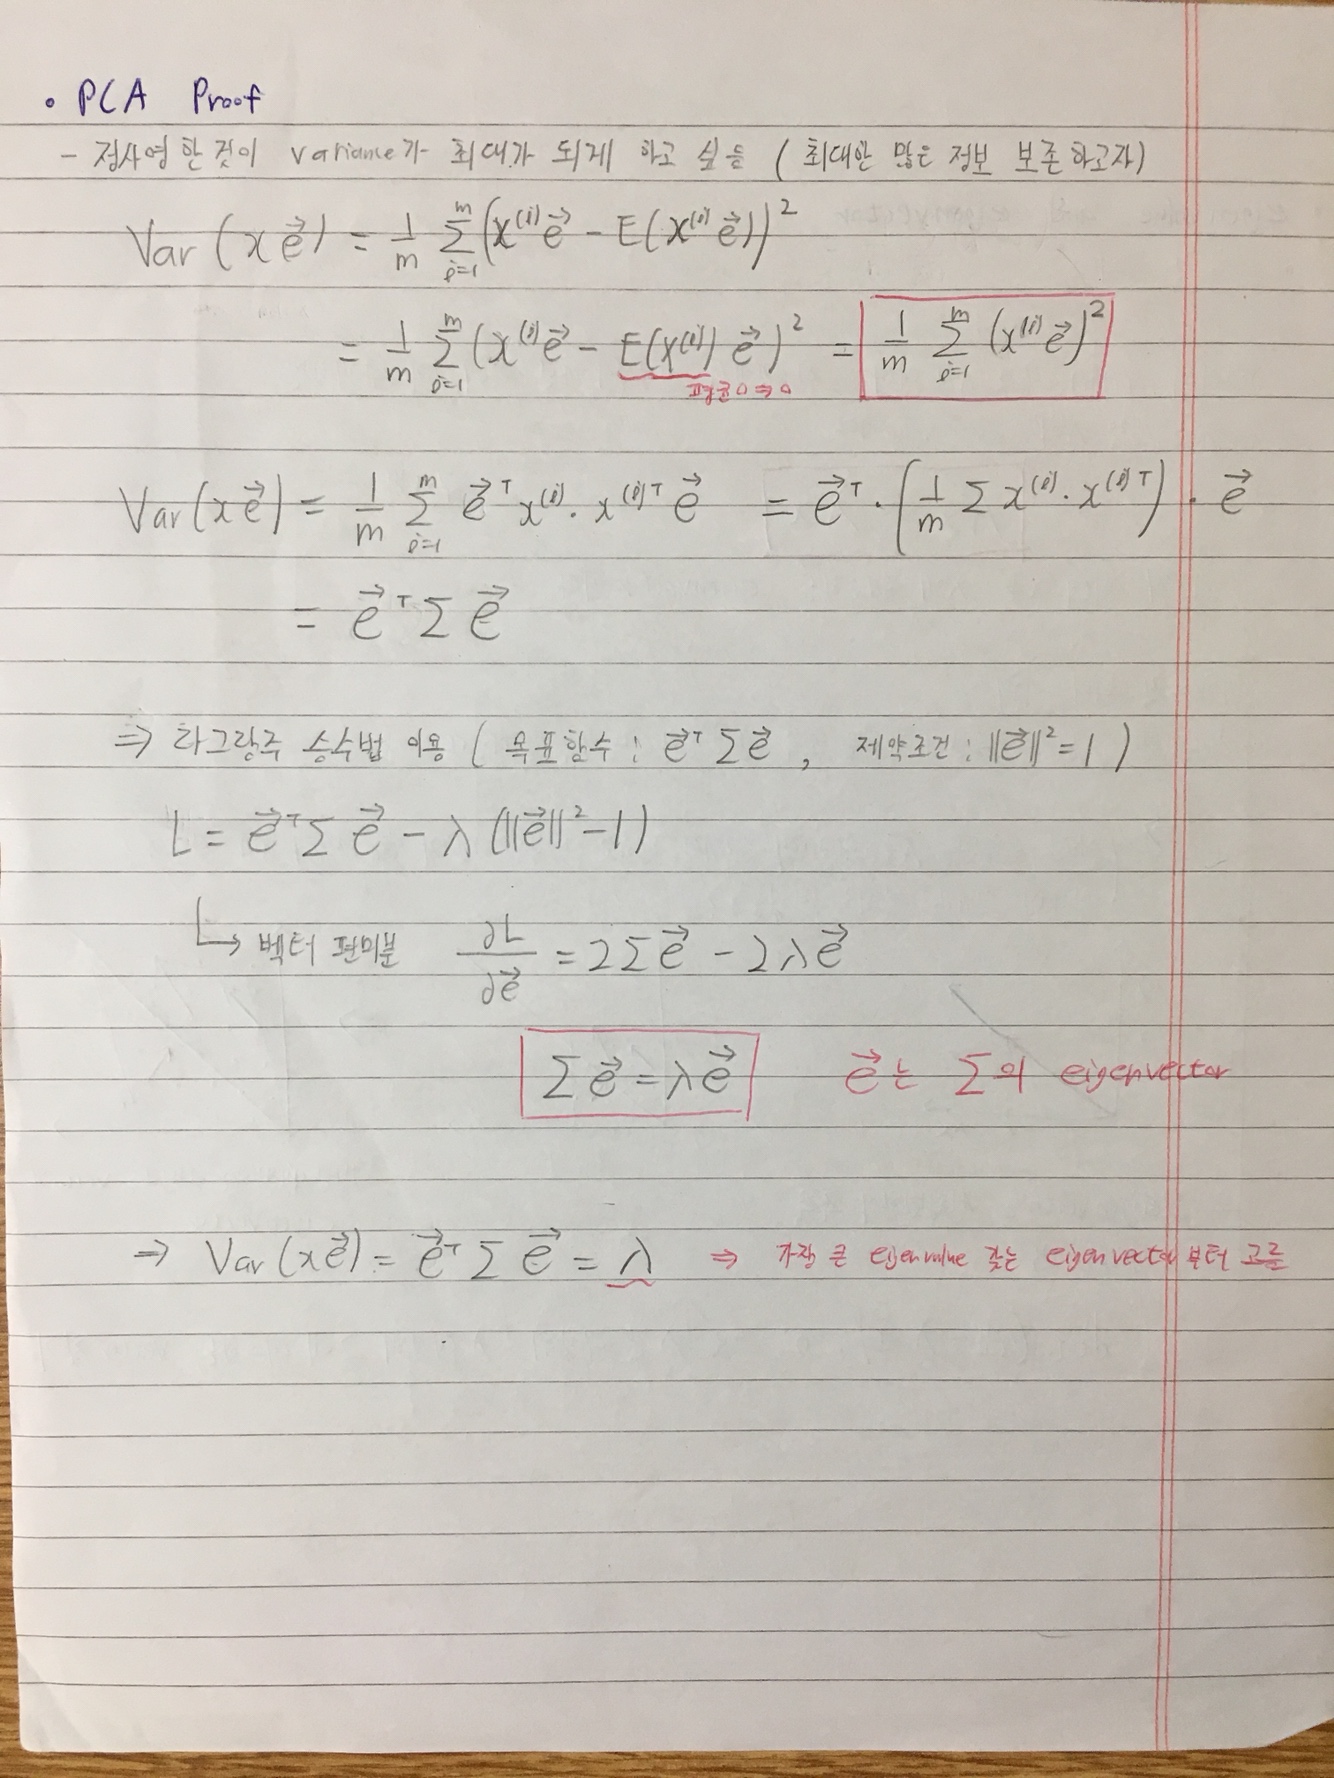 • PCA Proof
- 정사영 한 것이 variance가 최대가 되게 하고 싶음 (최대한 많은 정보 보존하고자)
Var(x e⃗) = 1/m Σ_{i=1}^{m} (x^{(i)} e⃗ - E(x^{(i)} e⃗))^2
= 1/m Σ_{i=1}^{m} (x^{(i)} e⃗ - E(x^{(i)}) e⃗)^2 = 1/m Σ_{i=1}^{m} (x^{(i)} e⃗)^2
평균 0 ⇒ 0
Var(x e⃗) = 1/m Σ_{i=1}^{m} e⃗^T x^{(i)} · x^{(i)T} e⃗ = e⃗^T · (1/m Σ x^{(i)} · x^{(i)T}) · e⃗
= e⃗^T Σ e⃗
⇒ 라그랑주 승수법 이용 (목표함수 : e⃗^T Σ e⃗ , 제약조건 : ||e⃗||^2 = 1)
L = e⃗^T Σ e⃗ - λ (||e⃗||^2 - 1)
↳ 벡터 편미분 ∂L/∂e⃗ = 2Σe⃗ - 2λe⃗
Σe⃗ = λe⃗ e⃗는 Σ의 eigenvector
⇒ Var(x e⃗) = e⃗^T Σ e⃗ = λ ⇒ 가장 큰 eigenvalue 갖는 eigenvector부터 고름